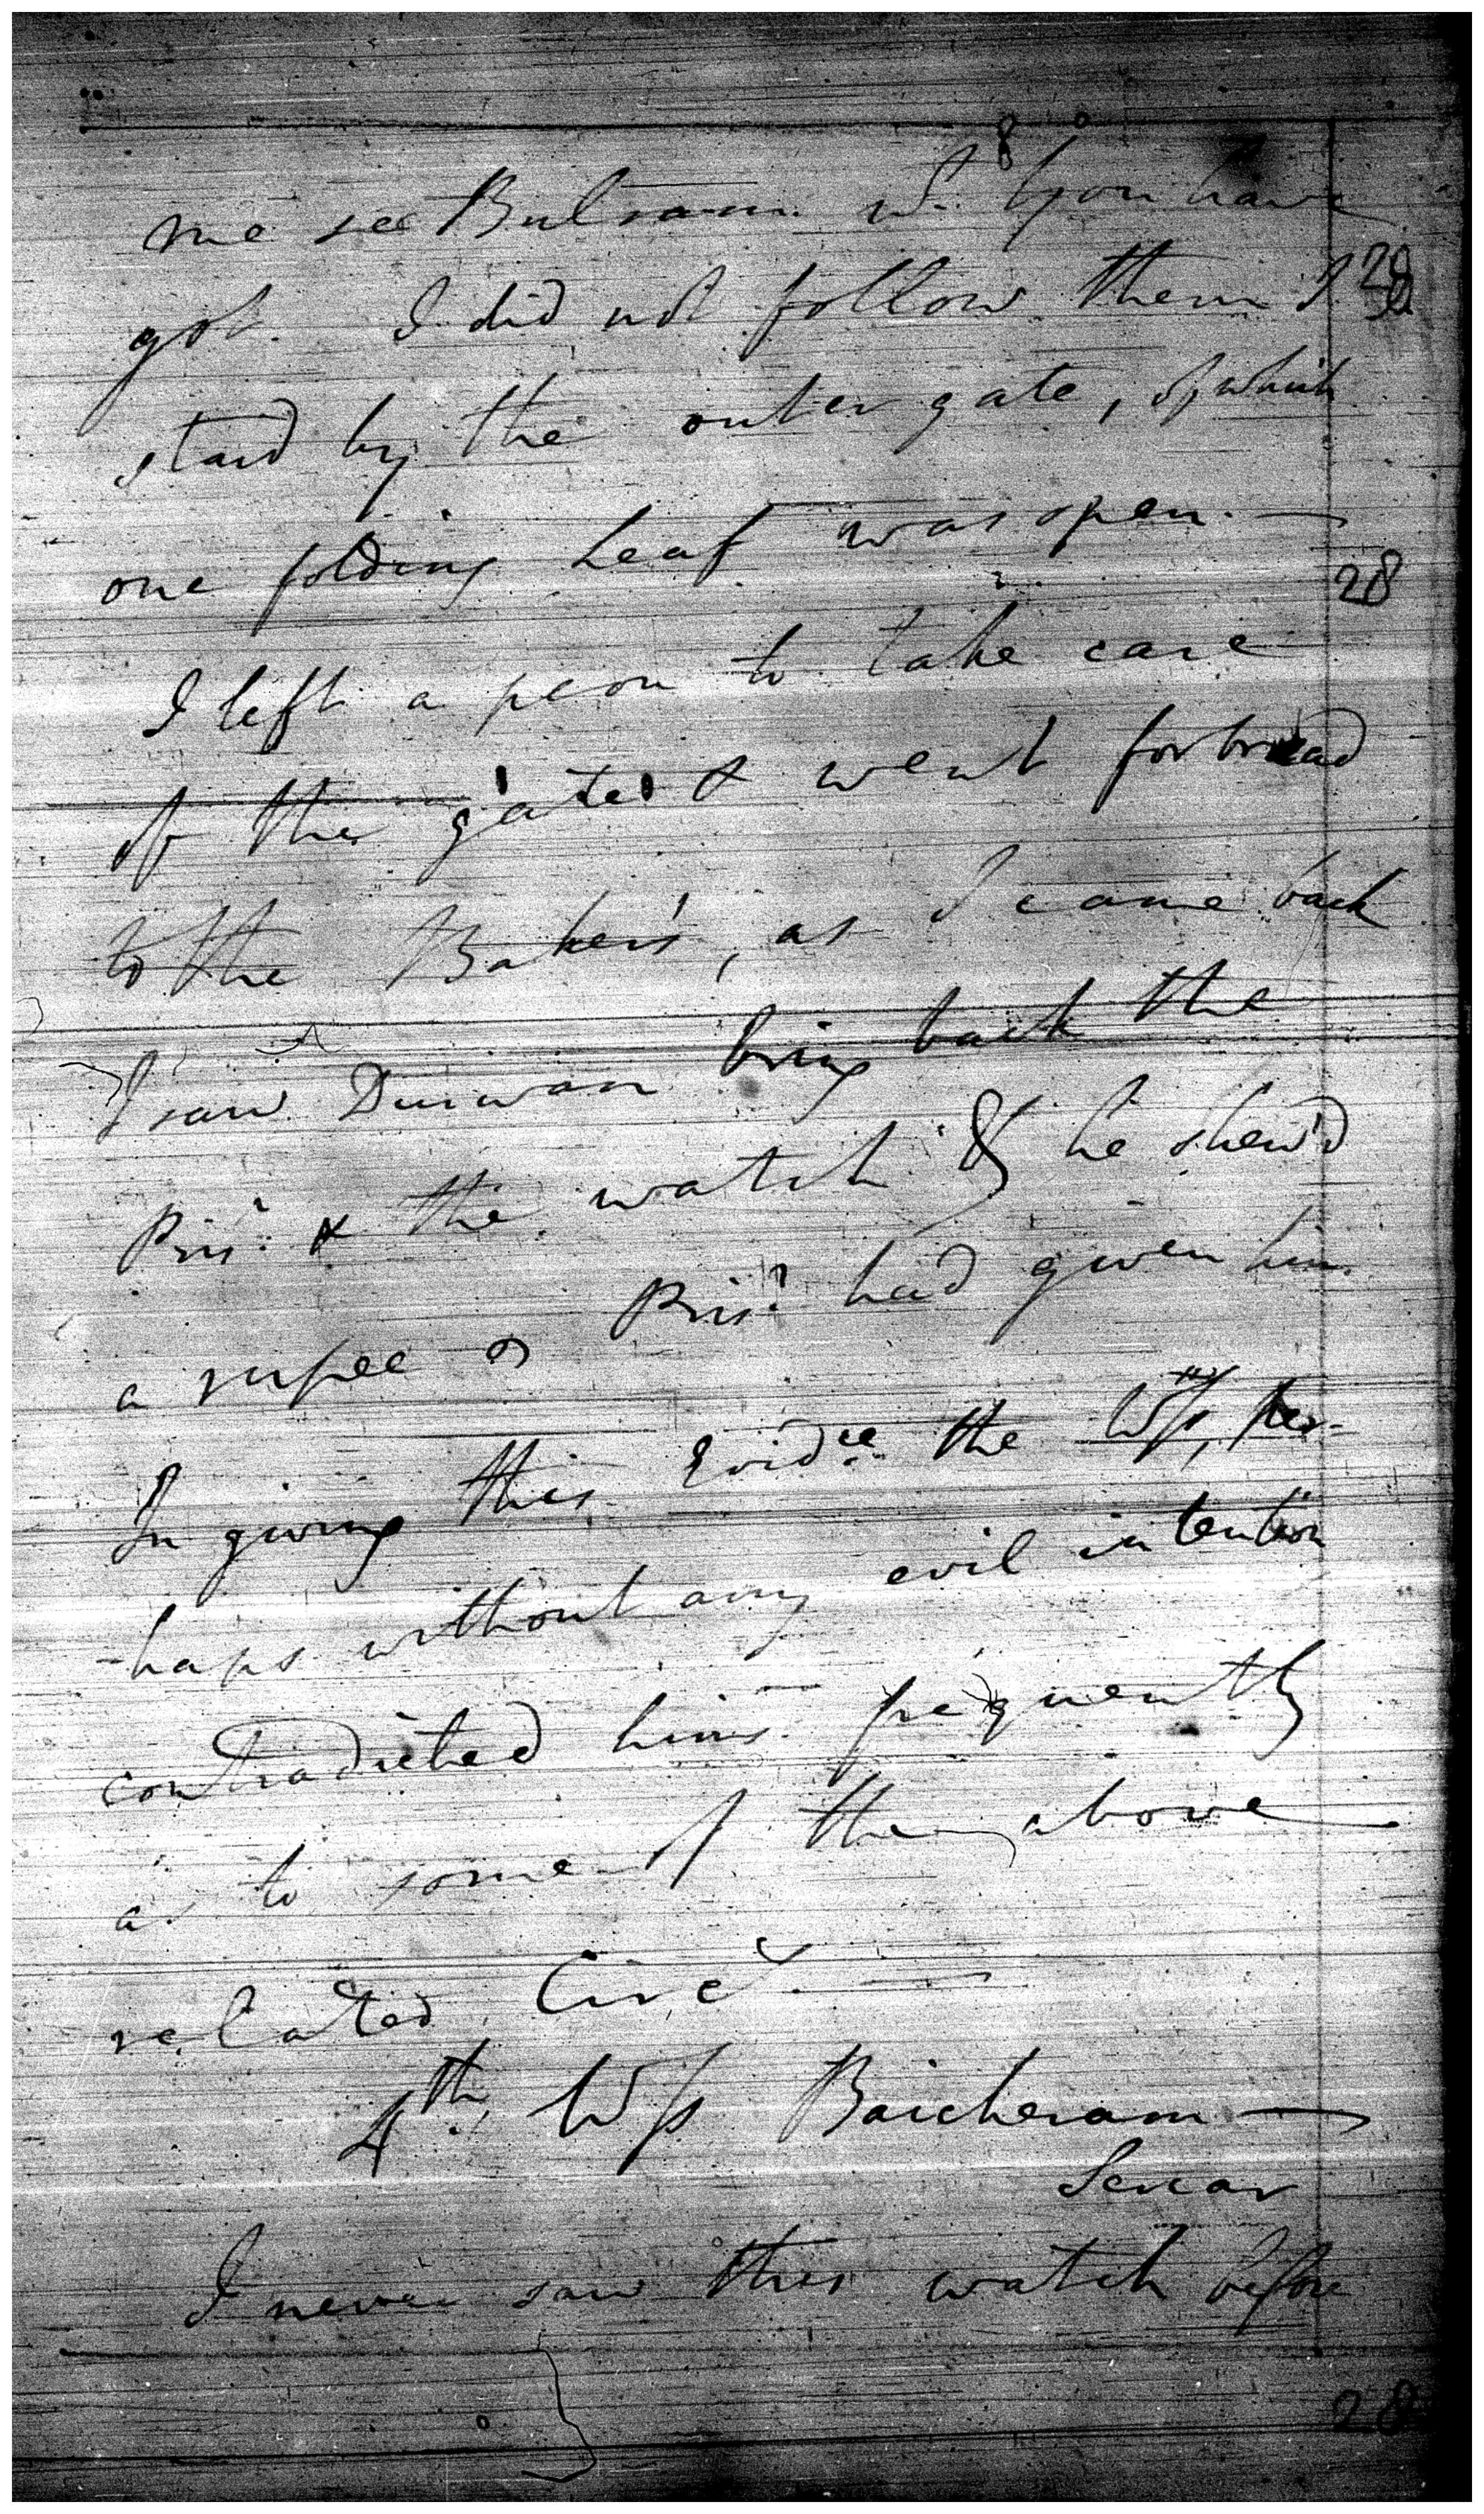 me see Bulram wt. you have
got. I did not follow them I
staid by the outer gate, of which
one folding Leaf was open. —
I left a peon to take care
of the gate & went for bread
to the Baker's, as I came back
I saw Durwan bring back the
Prisr. & the watch & he shew'd
a rupee Prisr. had given him
In giving this Evidce. the Wss, per-
-haps without any evil intention
contradicted hims. frequently
as to some of the above
related Circs. —
4th. Wss Baicheram —
Sercar
I never saw this watch before
28
28
28